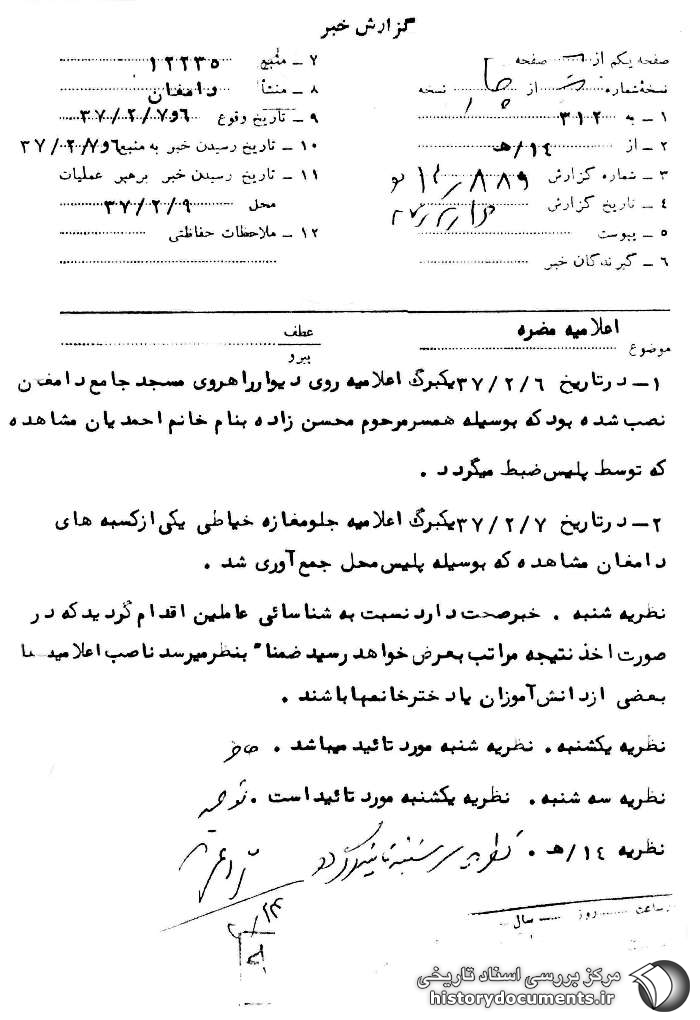 گزارش خبر
صفحه یکم از صفحه
نسخهٔ شماره از نسخه
۱ـ به ۳۱۲
۲ـ از ۱۴/هـ
۳ـ شماره گزارش
۴ـ تاریخ گزارش
۵ـ پیوست
۶ـ گیرندگان خبر
۷ـ منبع ۱۲۲۳۵
۸ـ منشأ دامغان
۹ـ تاریخ وقوع ۶و۳۷/۲/۷
۱۰ـ تاریخ رسیدن خبر به منبع ۶و۳۷/۲/۷
۱۱ـ تاریخ رسیدن خبر برهبر عملیات
محل ۳۷/۲/۹
۱۲ـ ملاحظات حفاظتی
موضوع اعلامیه مضره
عطف
پیرو
۱ـ درتاریخ ۳۷/۲/۶ یکبرگ اعلامیه روی دیوارراهروی مسجد جامع دامغان
نصب شده بود که بوسیله همسرمرحوم محسن زاده بنام خانم احمدیان مشاهده
که توسط پلیس ضبط میگردد .
۲ـ درتاریخ ۳۷/۲/۷ یکبرگ اعلامیه جلومغازه خیاطی یکی ازکسبه های
دامغان مشاهده که بوسیله پلیس محل جمع آوری شد .
نظریه شنبه . خبرصحت دارد نسبت به شناسائی عاملین اقدام گردید که در
صورت اخذ نتیجه مراتب بعرض خواهد رسید ضمنا" بنظرمیرسد ناصب اعلامیه‌ها
بعضی ازدانش آموزان یا دخترخانمها باشند .
نظریه یکشنبه . نظریه شنبه مورد تائید میباشد .
نظریه سه شنبه . نظریه یکشنبه مورد تائید است .
نظریه ۱۴/هـ .
ساعت روز سال
مرکز بررسی اسناد تاریخی
historydocuments.ir